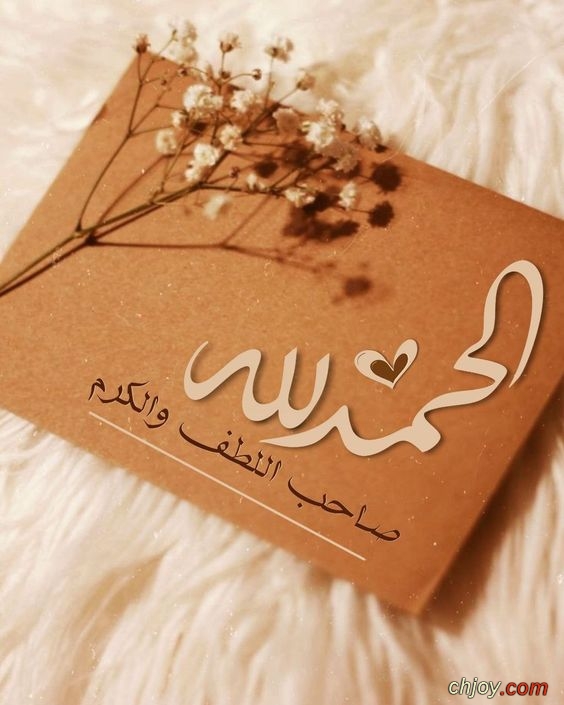 الحمدلله
صاحب اللطف والكرم
chjoy.com